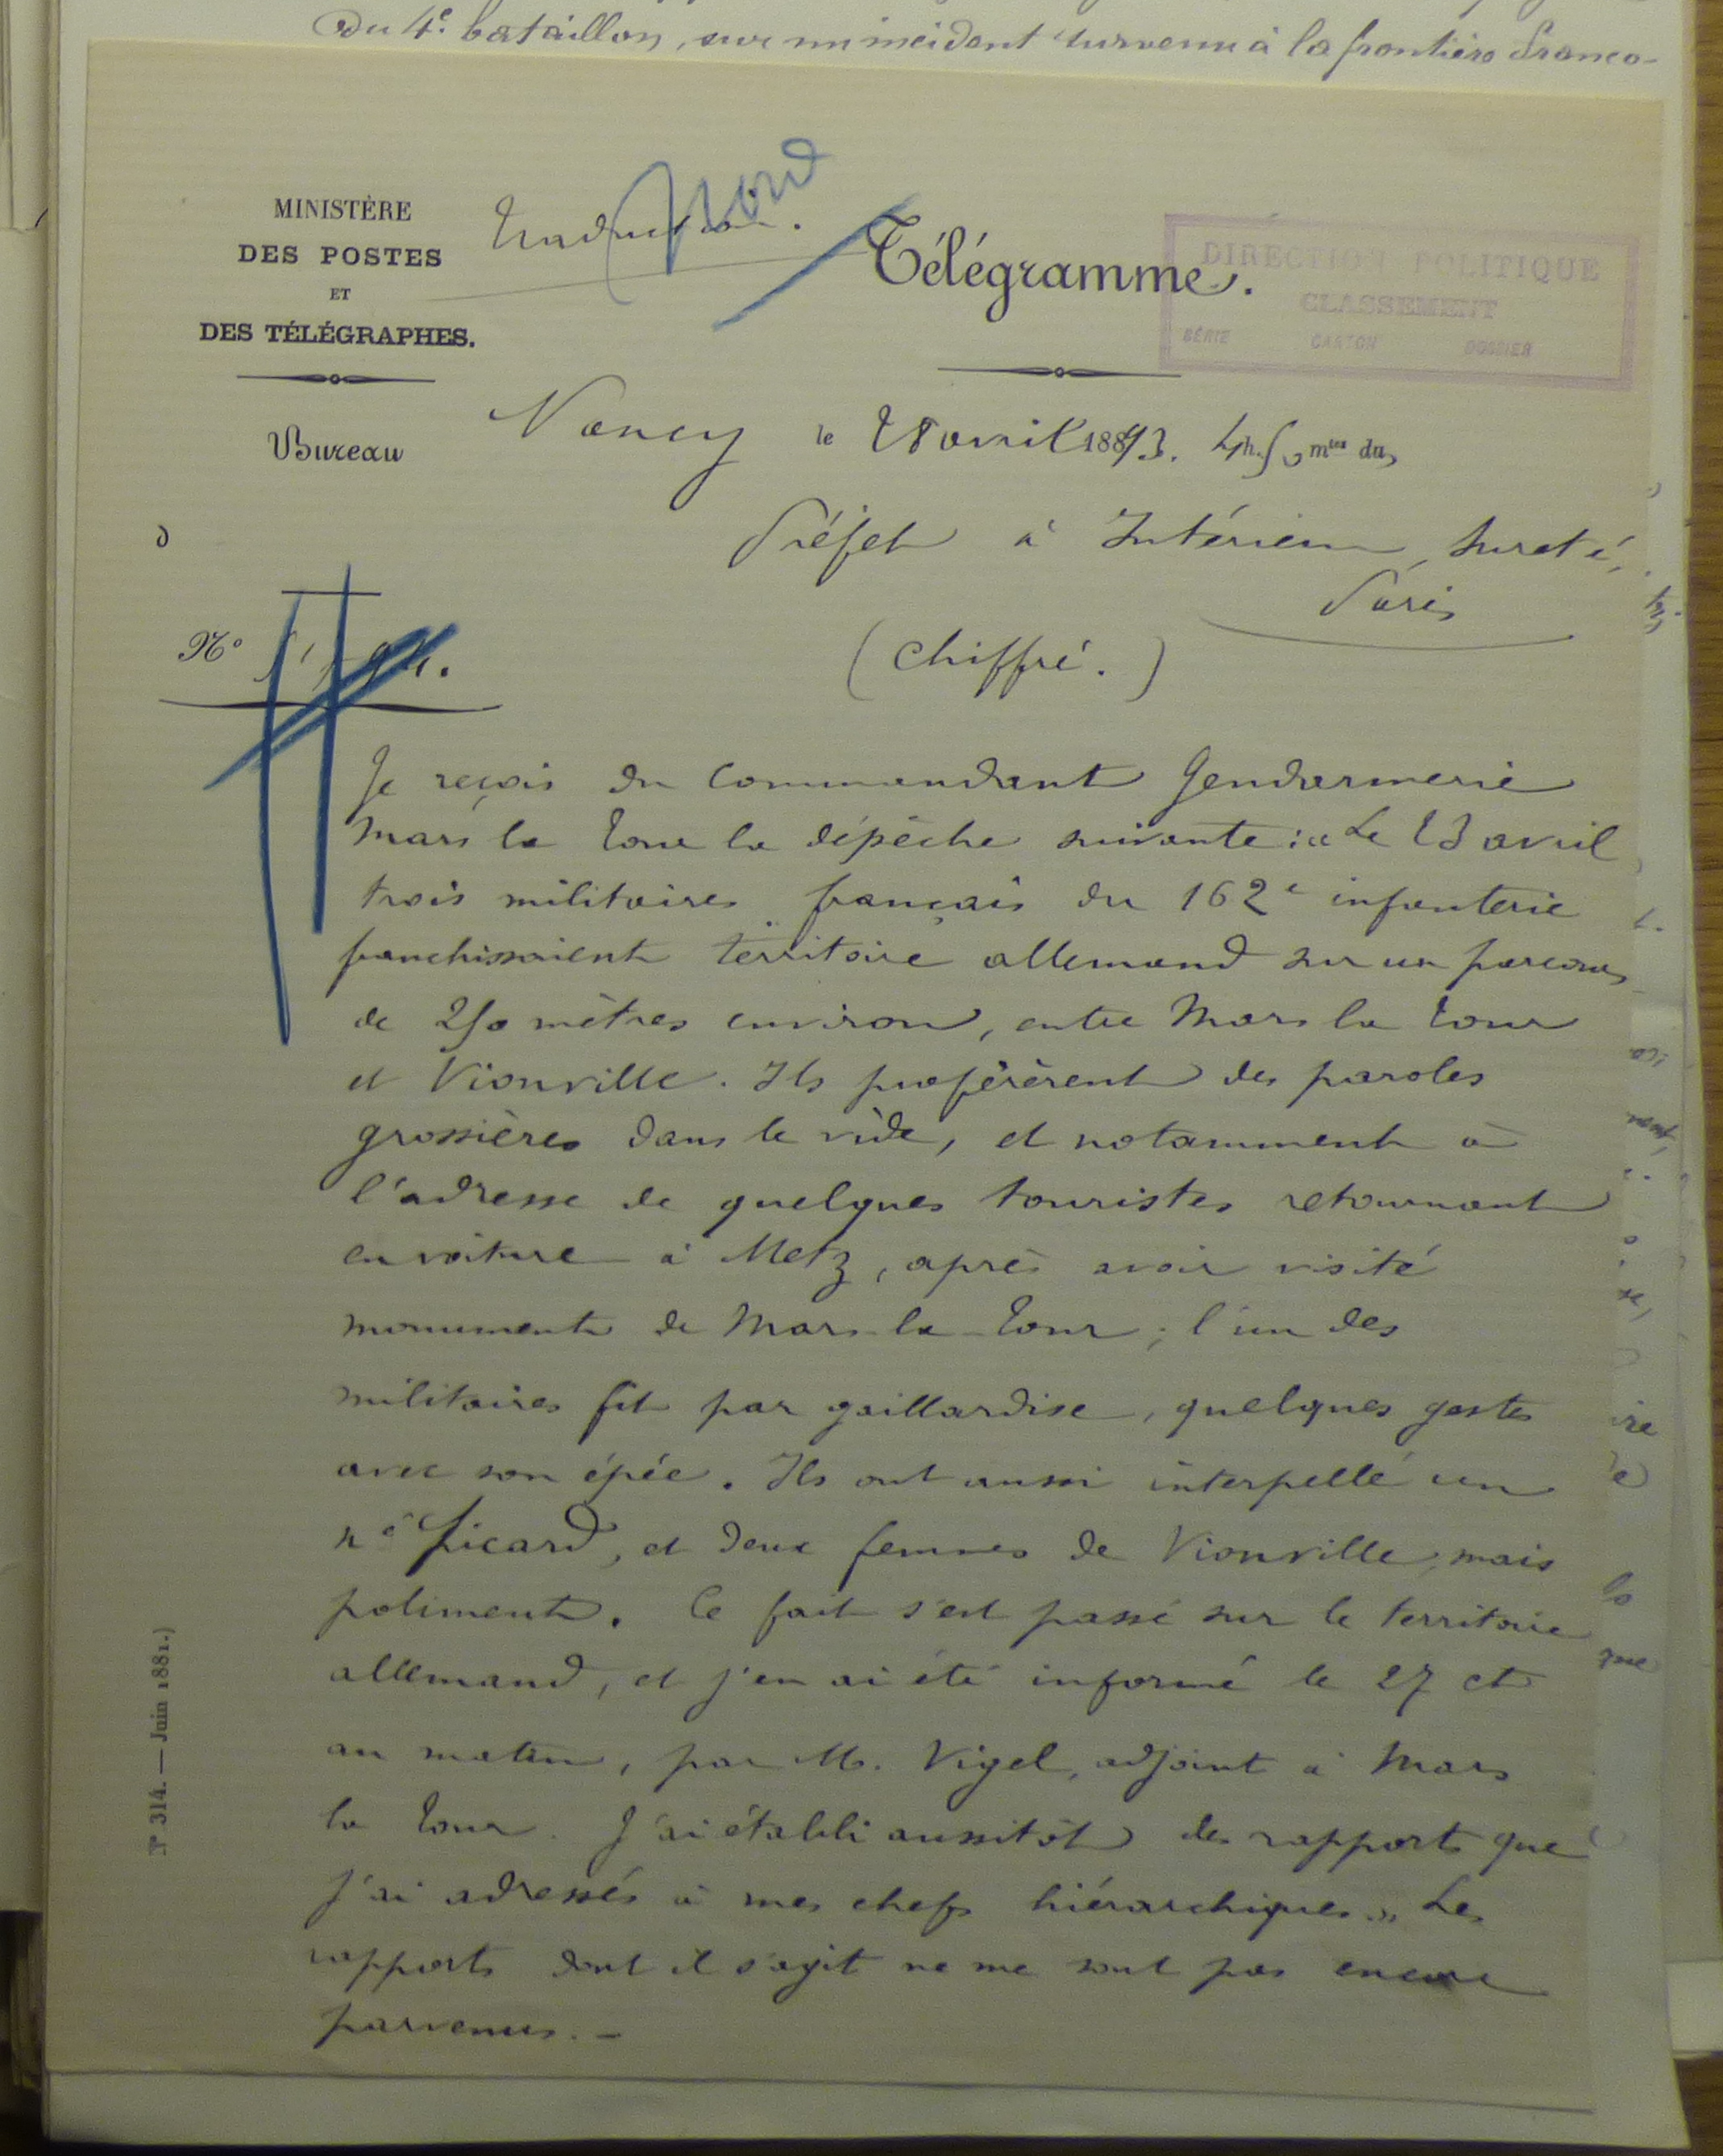 Du 4e. bataillon, sur un incident survenu à la frontière franco-
MINISTÈRE
DES POSTES
ET
DES TÉLÉGRAPHES.
Traduction.
Nord
Télégramme.
DIRECTION POLITIQUE
CLASSEMENT
SÉRIE CARTON DOSSIER
Bureau
Nancy le 28 avril 1893. 4h. 50 mtes du
Préfet à Intérieur, Sureté,
Paris
No
(Chiffré.)
Je reçois du Commandant Gendarmerie
Mars la Tour la dépêche suivante : « Le 23 avril
trois militaires français du 162e infanterie
franchissaient territoire allemand sur un parcours
de 250 mètres environ, entre Mars la Tour
et Vionville. Ils proférèrent des paroles
grossières dans le vide, et notamment à
l'adresse de quelques touristes retournant
en voiture à Metz, après avoir visité
monument de Mars-la-Tour ; l'un des
militaires fit par gaillardise, quelques gestes
avec son épée. Ils ont aussi interpellé un
né Picard, et deux femmes de Vionville, mais
poliment. Ce fait s'est passé sur le territoire
allemand, et j'en ai été informé le 27 ct
au matin, par M. Vigel, adjoint à Mars
la Tour. J'ai établi aussitôt des rapports que
j'ai adressés à mes chefs hiérarchiques. » Les
rapports dont il s'agit ne me sont pas encore
parvenus. —
No 314. — Juin 1881.)